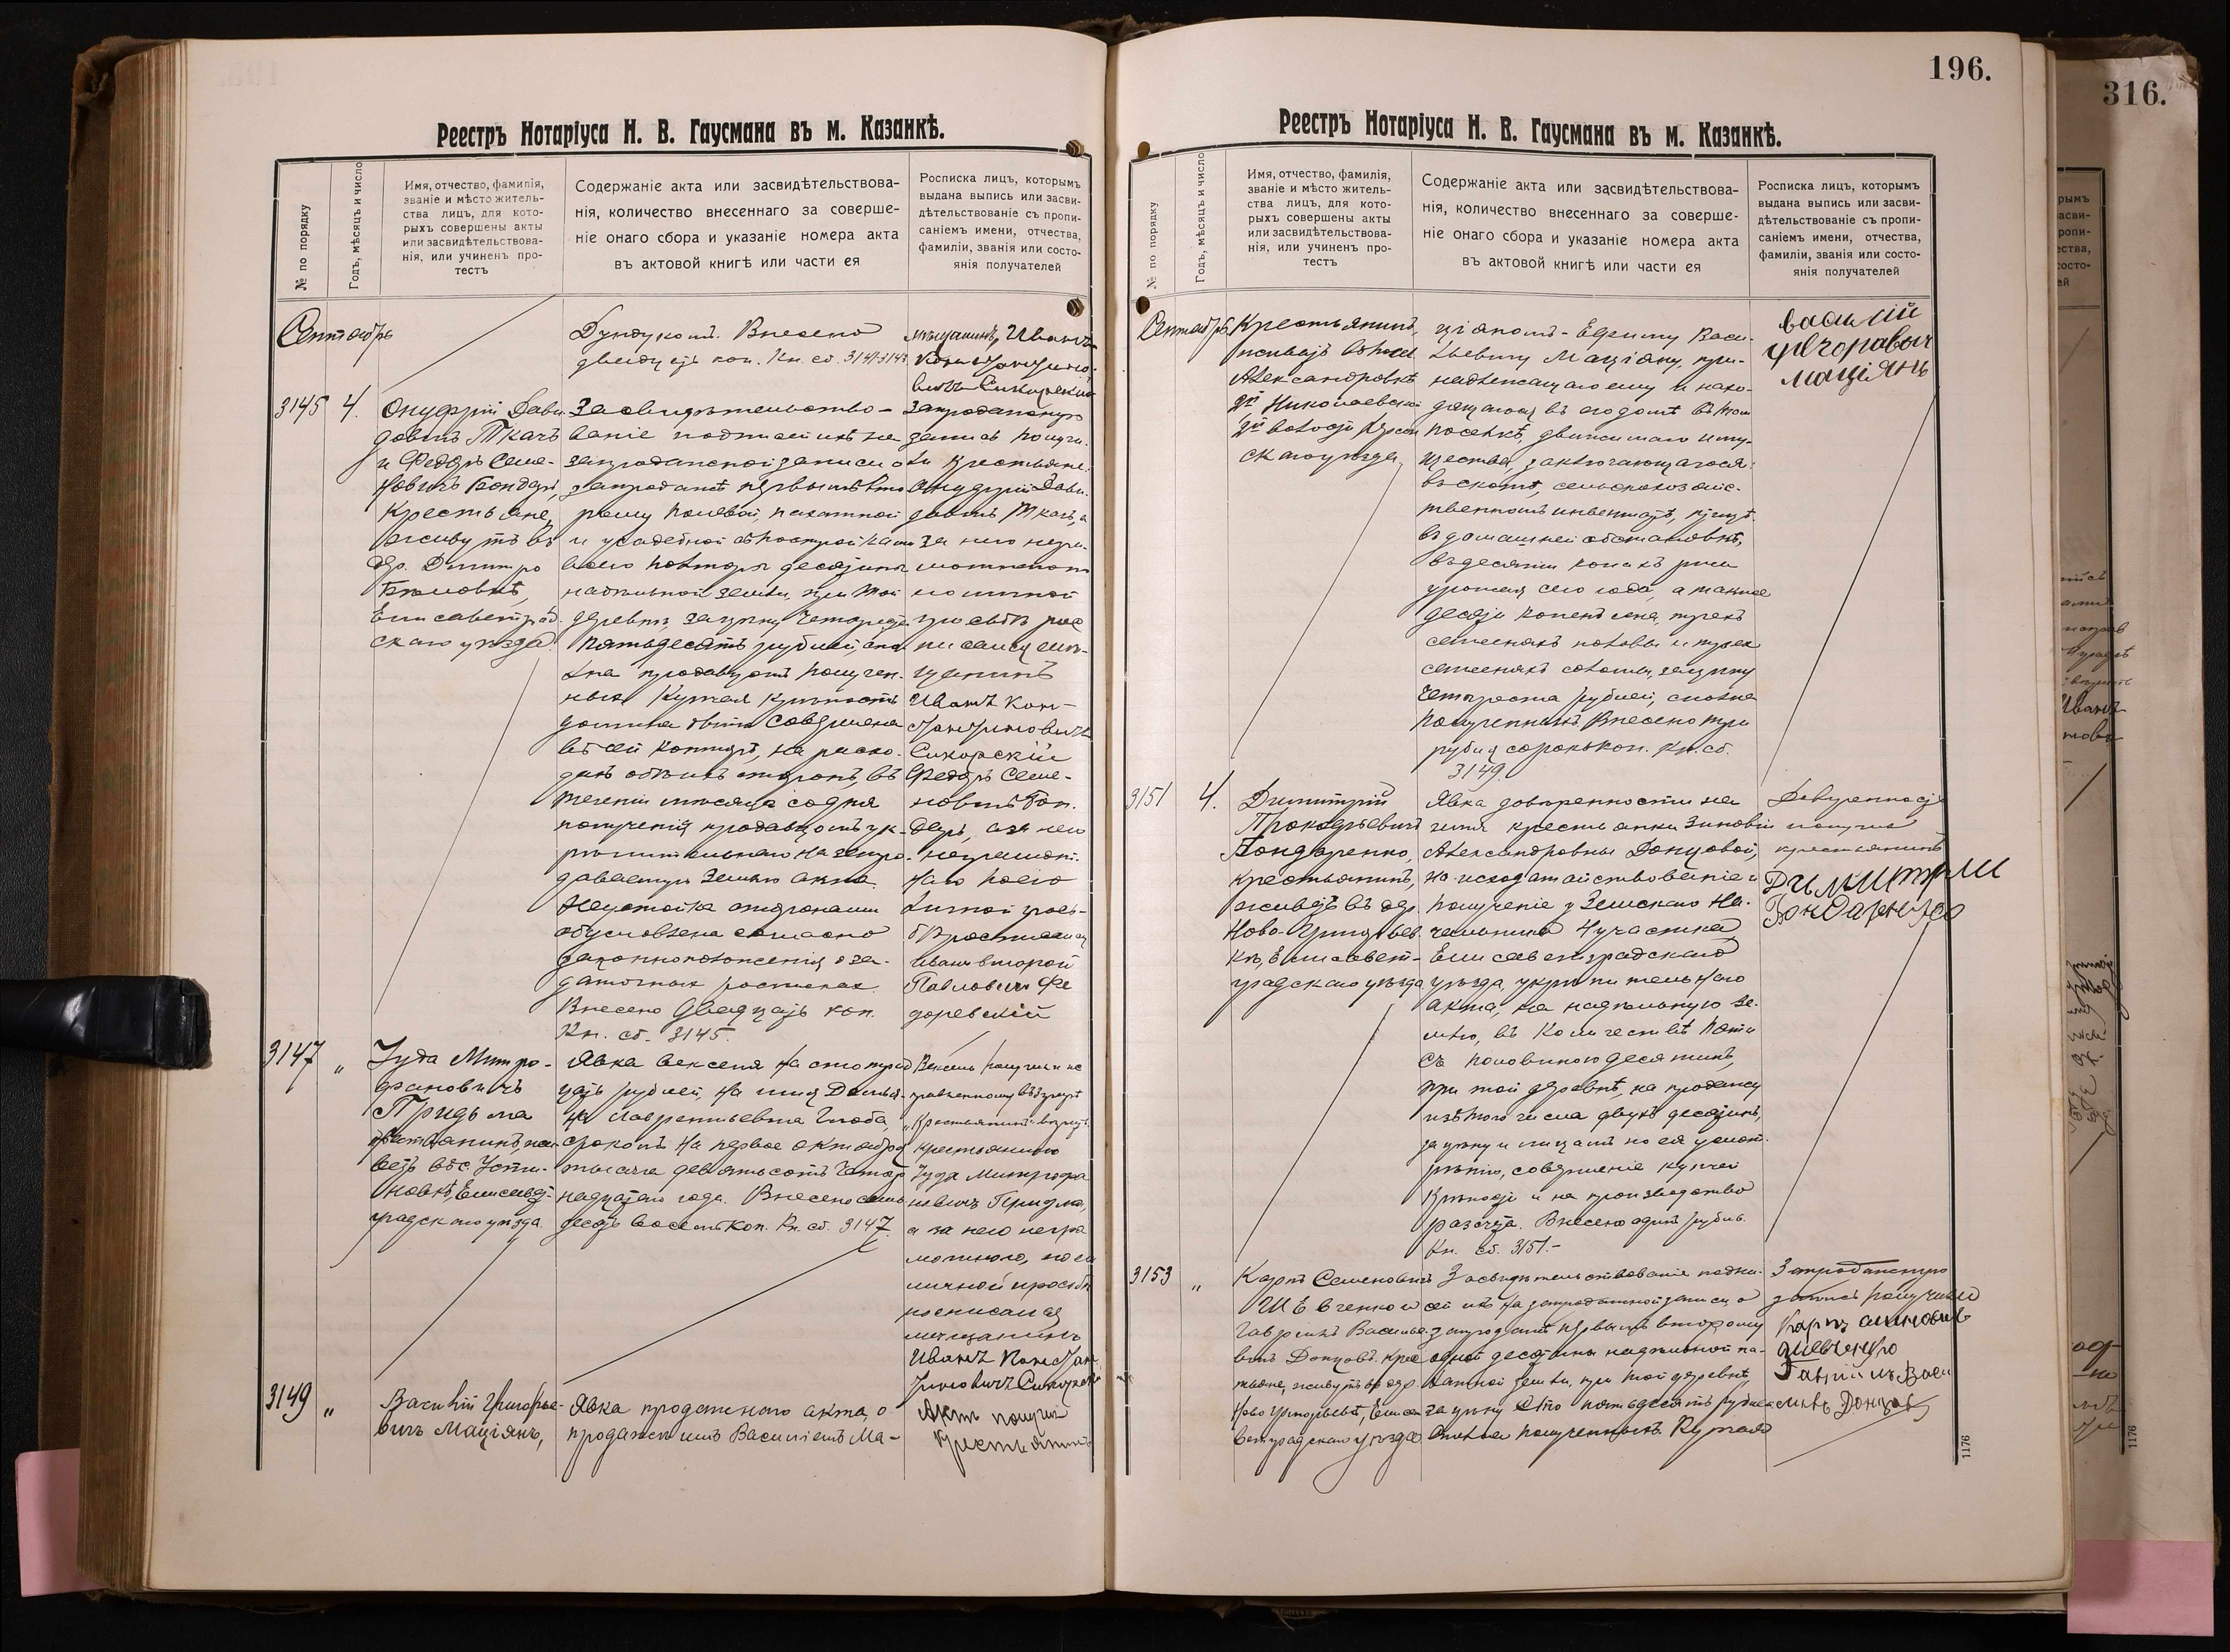 Реестръ Нотаріуса Н. В. Гаусмана въ м. Казанкѣ.
№ по порядку
Годъ, мѣсяцъ и число
Имя, отчество, фамилія,
званіе и мѣсто житель-
ства лицъ, для кото-
рыхъ совершены акты
или засвидѣтельствова-
нія, или учиненъ про-
тестъ
Содержаніе акта или засвидѣтельствова-
нія, количество внесеннаго за соверше-
ніе онаго сбора и указаніе номера акта
въ актовой книгѣ или части ея
Росписка лицъ, которымъ
выдана выпись или засви-
дѣтельствованіе съ пропи-
саніемъ имени, отчества,
фамиліи, званія или состо-
янія получателей
Сентябрь
Внесено
двадцать коп. Кн. сб. 3141-3143
мѣщанинъ Иванъ
Константино-
вичъ Сикорскій
3145
4.
Онуфрій Дави-
довичъ Ткачъ
и Федоръ Семе-
новичъ Бондарь,
крестьяне,
живутъ въ
дер. Дмитро
Бѣловкѣ,
Елисаветград-
скаго уѣзда
Засвидѣтельство-
ваніе подписей ихъ на
запродажной записи о
запродажѣ первымъ вто
рому полевой, пахатной
и усадебной съ постройками
всего полторы десятины
надѣльной земли, при той
деревнѣ, за цѣну четыреста
пятьдесятъ рублей, спол
на продавцомъ получен-
ныхъ. Купчая крѣпость
должна быть совершена
въ сей конторѣ, на расхо-
дахъ обѣихъ сторонъ, въ
теченіи мѣсяца со дня
полученія продавцомъ ук-
рѣпительнаго на запро-
даваемую землю акта.
Неустойка сторонами
обусловлена согласно
законоположенія о за-
даточныхъ роспискахъ.
Внесено двадцать коп.
Кн. сб. 3145.
Запродажную
запись получи-
ли крестьяне:
Онуфрій Дави-
довичъ Ткачъ, а
за него негра-
мотнаго
по личной
просьбѣ рос
писался мѣ-
щанинъ
Иванъ Кон-
стантиновичъ
Сикорскій
Федоръ Семе-
новичъ Бон-
дарь, а за него
неграмот-
наго по его
личной прось-
бѣ росписался
Иванъ второй
Павловичъ Фе
доревскій
3147
"
Іуда Митро-
фановичъ
Придьма
крестьянинъ, жи-
ветъ въ с. Усти-
новкѣ, Елисавет-
градскаго уѣзда.
Явка векселя на сто трид
цать рублей, на имя Демья-
на Лаврентьевича Глоба,
срокомъ на первое октября
тысяча девятьсотъ четыр
надцатаго года. Внесено семь-
десятъ восемь коп. Кн. сб. 3147.
Вексель получилъ ис
правленному вѣрить
"крестьянинъ" вѣрить
крестьянинъ
Іуда Митрофа
новичъ Придьма,
а за него негра
мотнаго, по его
личной просьбѣ
росписался
мѣщанинъ
Иванъ Констан-
тиновичъ Сикорскій
3149
"
Василій Григорье-
вичъ Маціянъ,
Явка продажнаго акта, о
продажѣ имъ Василіемъ Ма-
Актъ получилъ
крестьянинъ
196.
Реестръ Нотаріуса Н. В. Гаусмана въ м. Казанкѣ.
№ по порядку
Годъ, мѣсяцъ и число
Имя, отчество, фамилія,
званіе и мѣсто житель-
ства лицъ, для кото-
рыхъ совершены акты
или засвидѣтельствова-
нія, или учиненъ про-
тестъ
Содержаніе акта или засвидѣтельствова-
нія, количество внесеннаго за соверше-
ніе онаго сбора и указаніе номера акта
въ актовой книгѣ или части ея
Росписка лицъ, которымъ
выдана выпись или засви-
дѣтельствованіе съ пропи-
саніемъ имени, отчества,
фамиліи, званія или состо-
янія получателей
Сентябрь
Крестьянинъ,
живетъ въ пос.
Александровкѣ
Николаевской
волости Херсон
скаго уѣзда,
ціяномъ - Ефиму Васи-
льевичу Маціяну, при-
надлежащаго ему и нахо-
дящагося въ его домѣ въ томъ
поселкѣ, движимаго иму-
щества, заключающагося:
въ скотѣ, сельскохозяйс-
твенномъ инвентарѣ, птицѣ,
въ домашней обстановкѣ,
въ десяти копахъ ржи
урожая сего года, а также
десяти копенъ сѣна, трехъ
саженяхъ половы и трехъ
саженяхъ соломы, за цѣну
четыреста рублей, сполна
полученныхъ. Внесено три
рубля сорокъ коп. Кн. сб.
3149.
василій
григоравыч
маціянъ
3151
4.
Димитрій
Прокофьевичъ
Бондаренко,
крестьянинъ,
живетъ въ дер.
Ново-Григорьев-
кѣ, Елисавет-
градскаго уѣзда
Явка довѣренности на
имя крестьянки Зиновіи
Александровны Донцовой,
на исходатайствованіе и
полученіе у Земскаго На-
чальника 4 участка
Елисаветградскаго
уѣзда, укрѣпительнаго
акта, на надѣльную зе-
млю, въ количествѣ пяти
съ половиною десятинъ,
при той деревнѣ, на продажу
изъ того числа двухъ десятинъ,
за цѣну и лицамъ по ея усмот-
рѣнію, совершеніе купчей
крѣпости и на производство
разсчета. Внесено одинъ рубль.
Кн. сб. 3151.-
Довѣренность
получилъ
крестьянинъ
Димитрий
Бондаренко
3153
"
Карпъ Семеновичъ
Шевченко и
Гавріилъ Василье-
вичъ Донцовъ, крес
тьяне, живутъ въ дер.
Ново Григорьевкѣ, Елиса
ветградскаго уѣзда
Засвидѣтельствованіе подпи-
сей ихъ на запродажной записи о
запродажѣ первымъ второму
одной десятины надѣльной па-
хатной земли, при той деревнѣ,
за цѣну сто пятьдесятъ рублей
сполна полученныхъ. Купчая
Запродажную
запись получили
Карпъ симновив
шевченко
Гавріилъ Васи
льевъ Донцовъ
1176
316.
1176